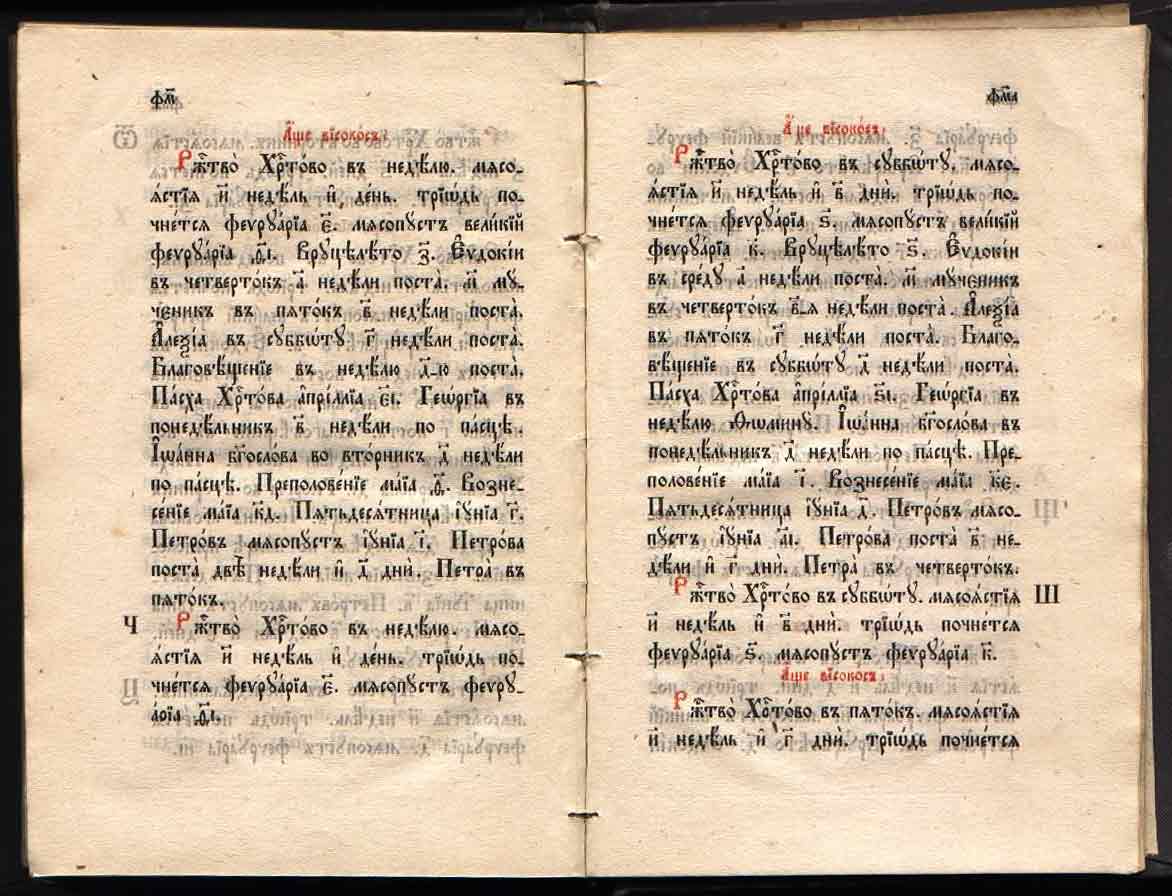 фм҃
А҆ще високо́съ,
Рж҃тво̀ Хр҃то́во въ недѣ́лю. мясо-
я́стїя и҃ недѣ́ль и҆ де́нь. трїѡ́дь по-
чне́тся феѵрꙋа́рїа є҃. мясопꙋ́стъ вели́кїй
феѵрꙋа́рїа ѳ҃і. Врꙋцѣлѣ́то з҃. Е҆ѵдокі́и
въ четверто́къ а҃ недѣ́ли поста̀. м҃ мꙋ́-
ченикъ въ пято́къ в҃ недѣ́ли поста̀.
А҆леѯі́а въ сꙋббѡ́тꙋ г҃ недѣ́ли поста̀.
Благовѣ́щенїе въ недѣ́лю д҃-ю поста̀.
Па́сха Хр҃то́ва а҆прі́ллїа є҃і. Геѡ́ргїа въ
понедѣ́льникъ в҃ недѣ́ли по па́сцѣ.
І҆ѡа́нна бг҃осло́ва во вто́рникъ д҃ недѣ́ли
по па́сцѣ. Преполове́нїе ма́їа ѳ҃. Возне-
се́нїе ма́їа к҃д. Пятьдеся́тница і҆ꙋ́нїа г҃.
Петро́въ мясопꙋ́стъ і҆ꙋ́нїа і҃. Петро́ва
поста̀ двѣ̀ недѣ́ли и҆ д҃ днѝ. Петра̀ въ
пято́къ.
Ч Рж҃тво̀ Хр҃то́во въ недѣ́лю. мясо-
я́стїя и҃ недѣ́ль и҆ де́нь. трїѡ́дь по-
чне́тся феѵрꙋа́рїа є҃. мясопꙋ́стъ феѵрꙋ-
а́рїа ѳ҃і.
фм҃а
А҆ще високо́съ,
Рж҃тво̀ Хр҃то́во въ сꙋббѡ́тꙋ, мясо-
я́стїя и҃ недѣ́ль и҆ в҃ днѝ. трїѡ́дь по-
чне́тся феѵрꙋа́рїа ѕ҃. мясопꙋ́стъ вели́кїй
феѵрꙋа́рїа к҃. Врꙋцѣлѣ́то ѕ҃. Е҆ѵдокі́и
въ сре́дꙋ а҃ недѣ́ли поста̀. м҃ мꙋ́ченикъ
въ четверто́къ в҃-я недѣ́ли поста̀. А҆леѯі́а
въ пято́къ г҃ недѣ́ли поста̀. Благо-
вѣ́щенїе въ сꙋббѡ́тꙋ д҃ недѣ́ли поста̀.
Па́сха Хр҃то́ва а҆прі́ллїа ѕ҃і. Геѡ́ргїа въ
недѣ́лю Ѳоминꙋ̀. І҆ѡа́нна бг҃осло́ва въ
понедѣ́льникъ д҃ недѣ́ли по па́сцѣ. Пре-
полове́нїе ма́їа і҃. Вознесе́нїе ма́їа к҃є.
Пятьдеся́тница і҆ꙋ́нїа д҃. Петро́въ мясо-
пꙋ́стъ і҆ꙋ́нїа а҃і. Петро́ва поста̀ в҃ не-
дѣ́ли и҆ г҃ днѝ. Петра̀ въ четверто́къ.
Рж҃тво̀ Хр҃то́во въ сꙋббѡ́тꙋ. мясоя́стїя Ш
и҃ недѣ́ль и҆ в҃ днѝ. трїѡ́дь почне́тся
феѵрꙋа́рїа ѕ҃. мясопꙋ́стъ феѵрꙋа́рїа к҃.
А҆ще високо́съ,
Рж҃тво̀ Хр҃то́во въ пято́къ. мясоя́стїя
и҃ недѣ́ль и҆ г҃ днѝ. трїѡ́дь почне́тся